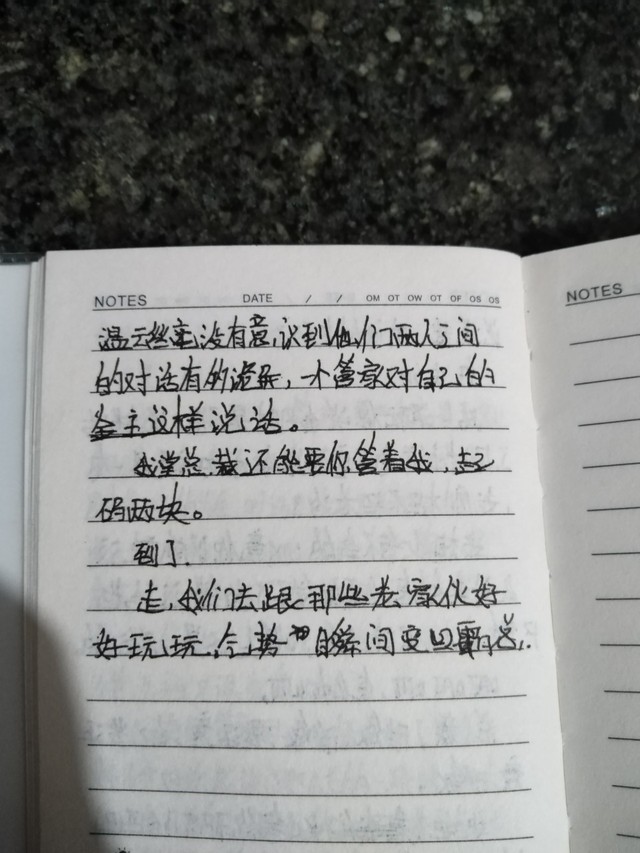 NOTES DATE / / OM OT OW OT OF OS OS
温云丝毫没有意识到他们两人之间
的对话有的诡异，一个管家对自己的
金主这样说话。
我堂总裁还能要你管着我，起
码两块。
到了.
走，我们去跟那些老家伙好
好玩玩，气势 瞬间变
NOTES